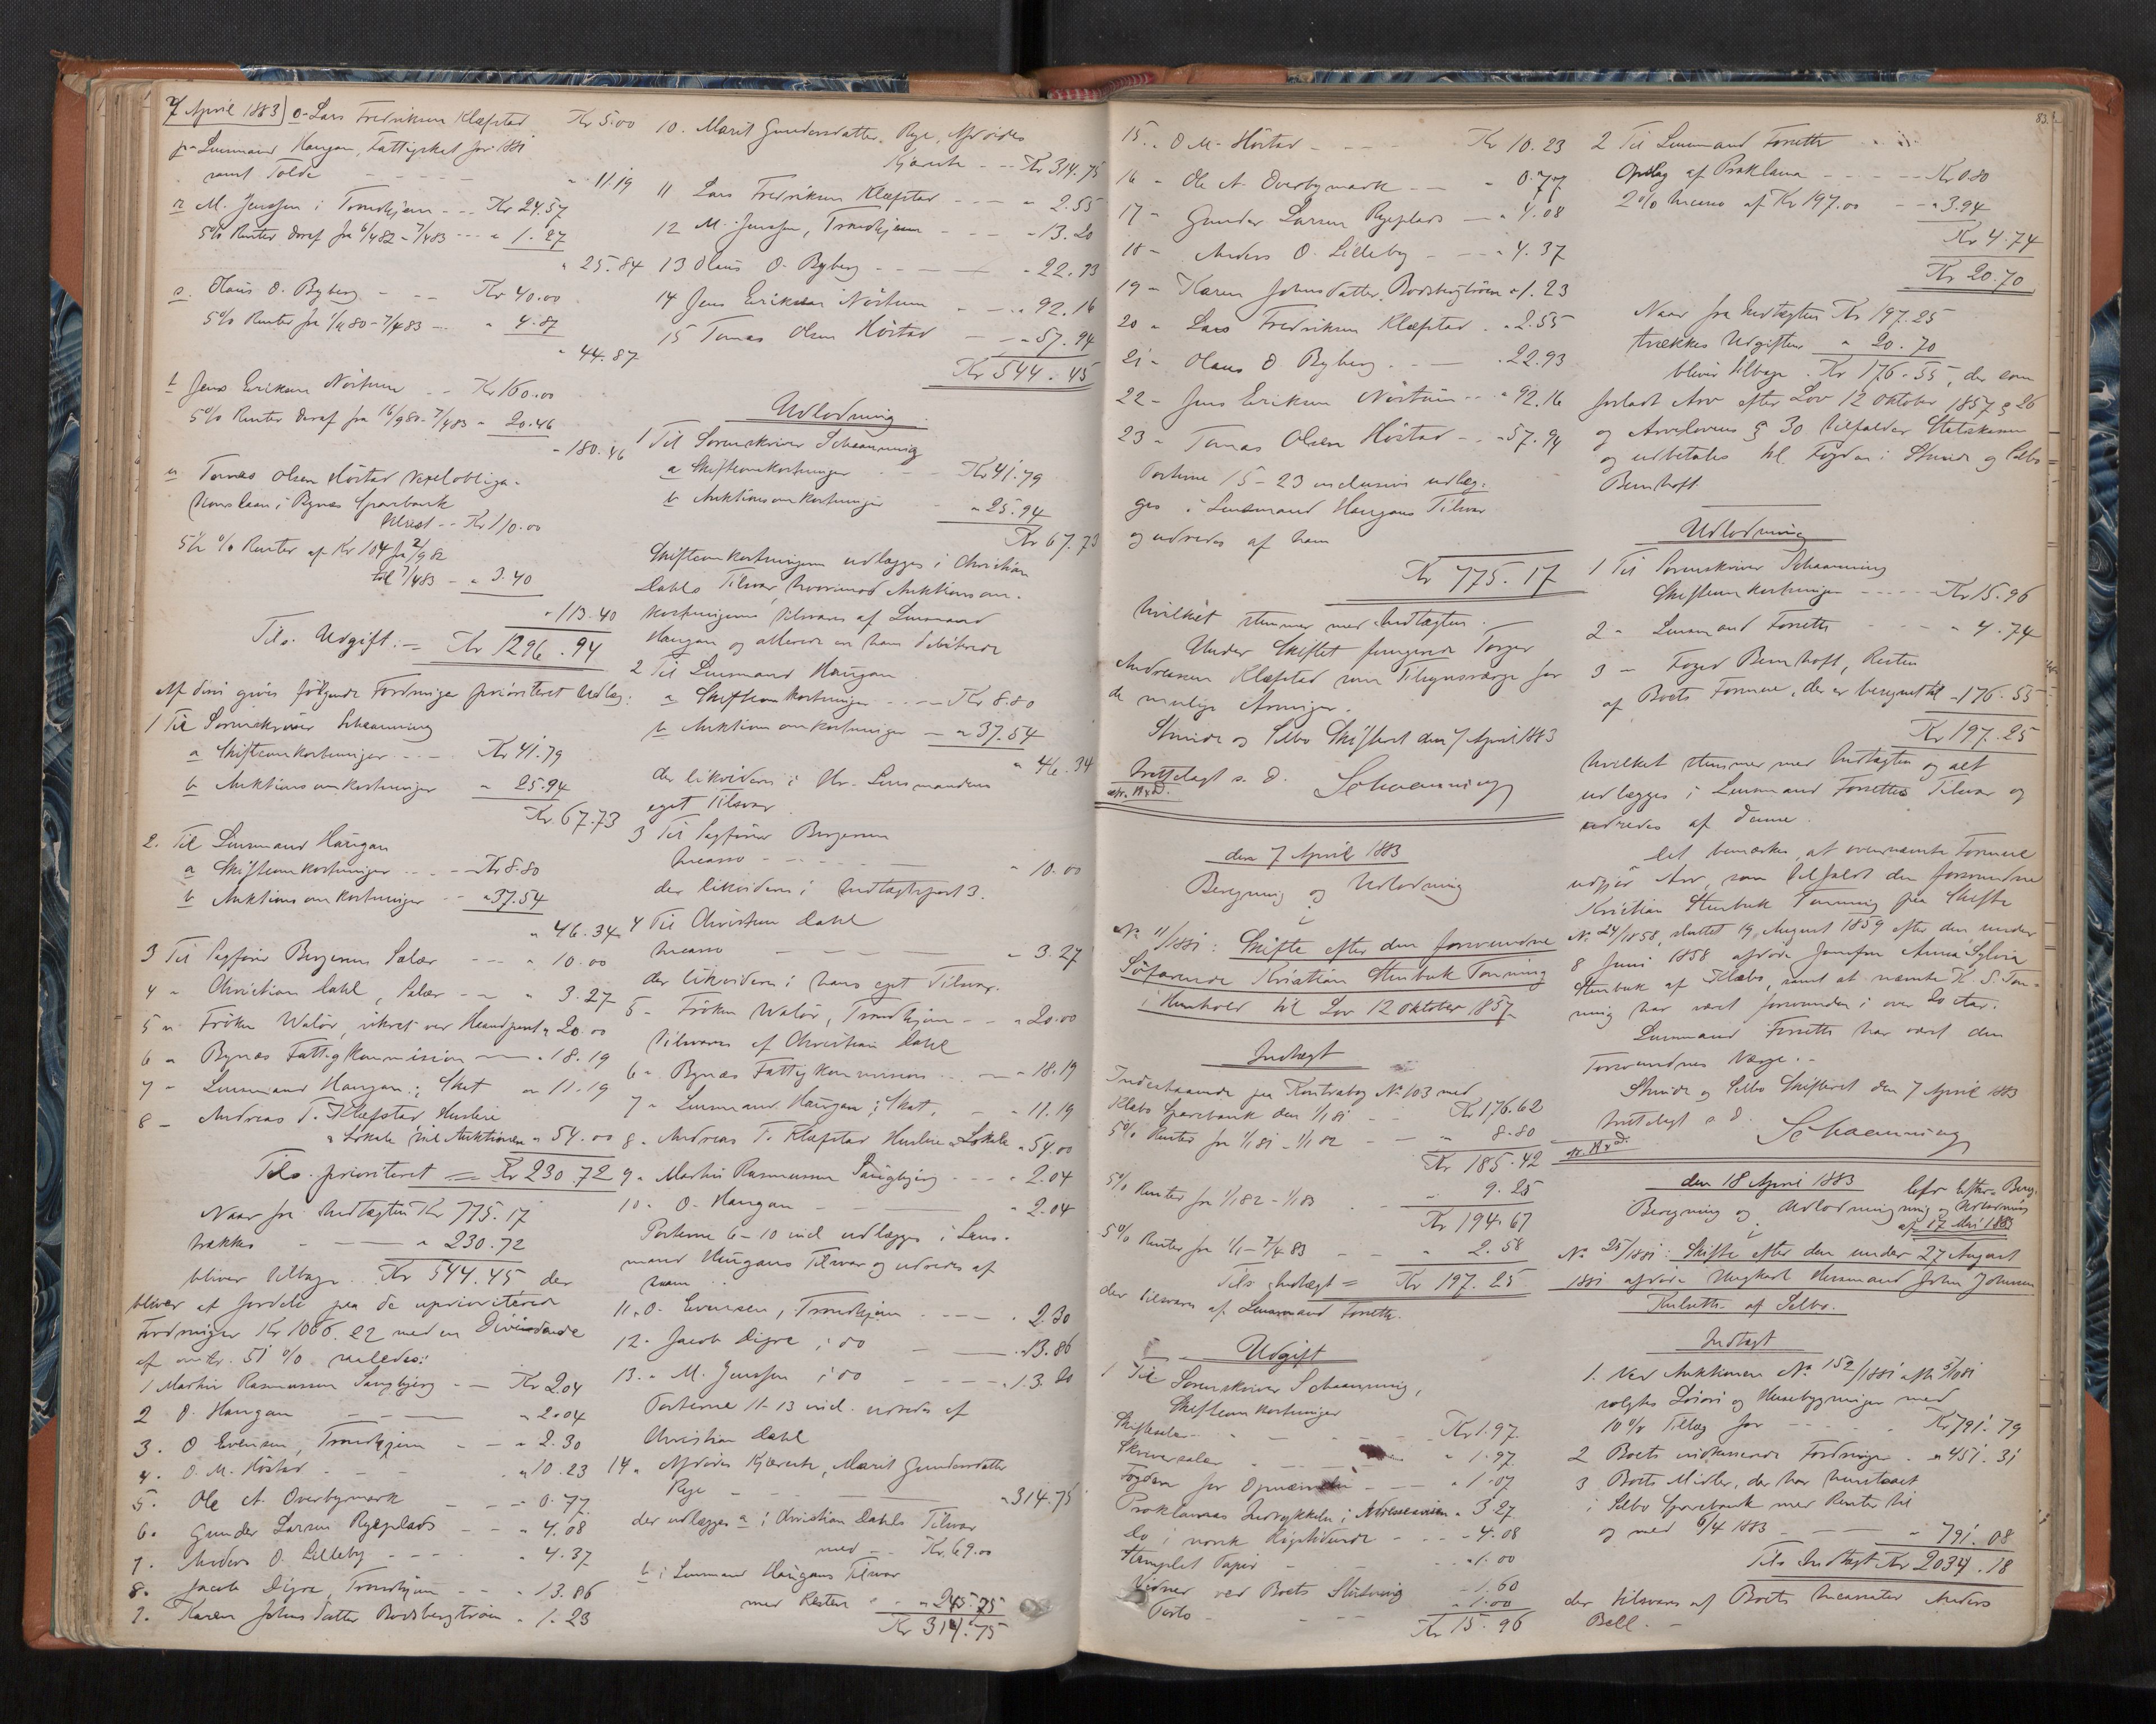 7 April 1883) o - Lars Fredriksen Klæfstad Kr 5.00
p - Lensmand Haugan, Fattigskat for 1881
samt Told - - - - - " 11.19
r M. Jenssen i Trondhjem - - - Kr 24.57
5% Renter deraf fra 6/4 82 - 7/4 83 - - - " 1.27
" 25.84
s. Olaus O. Byberg - - - Kr 40.00
5% Renter fra 1/11 80 - 7/4 83 - - " 4.87
" 44.87
t Jens Eriksen Nöstum - - Kr 160.00
5% Renter deraf fra 16/9 80 - 7/4 83 " 20.46
- 180.46
u Tomas Olsen Höstad Vexelobliga-
tionslaan i Bynæs Sparebank
tilrest - - Kr 110.00
5 1/2 % Renter af Kr 104 fra 2/9 82
til 7/4 83 - " 3.40
" 113.40
Tils. Udgift. = Kr 1296.94
Af disse gives følgende Fordringer prioriteret Udlæg:
1 Til Sorenskriver Schaanning
a Skifteomkostninger - - Kr 41.79
b Auktionsomkostninger " 25.94
Kr. 67.73
2. Til Lensmand Haugan
a Skifteomkostninger - - - Kr 8.80
b Auktionsomkostninger - - " 37.54
" 46.34
3 Til Sagfører Birgersens Salær - - - " 10.00
4 " Christian Dahl, Salær - - " 3.27
5 " Frøken Walør, sikret ved Haandpant " 20.00
6 " Bynæs Fattigkommission - - " 18.19
7 - Lensmand Haugan: Skat " 11.19
8 - Andreas T. Klæfstad Husleie
" Lokale til Auktionen " 54.00
Tils. prioriteret = Kr 230.72
Naar fra Indtægten Kr 775.17
trækkes - - - - " 230.72
bliver tilbage Kr 544.45 der
bliver at fordele paa de uprioriterede
Fordringer Kr 1066.22 med en Dividende
af omtr. 51 % saaledes:
1 Martin Rasmussen Saugbjerg - - Kr 2.04
2 O. Haugan - - - " 2.04
3. O Evensen, Trondhjem - - " 2.30
4. O. M. Höstad - - - " 10.23
5. Ole A. Overbymark - - " 0.77
6. Gunder Larsen Ryeplads - - " 4.08
7. Anders O. Lilleby - - - " 4.37
8. Jacob Digre, Trondhjem - - " 13.86
9. Karen Johnsdatter Bodsbergtrøen - 1.23
10. Marit Gundersdatter Rye, Afdødes
Kjæreste - - - Kr 314.75
11 Lars Fredriksen Klæfstad - - - " 2.55
12 M. Jenssen, Trondhjem - - - " 13.20
13 Olaus O. Byberg - - - " 22.93
14 Jens Eriksen Nöstum - - " 92.16
15 Tomas Olsen Höstad - - " 57.94
Kr 544.45
Udlodning
1 Til Sorenskriver Schaanning
a Skifteomkostninger - - - Kr 41.79
b Auktionsomkostninger - " 25.94
Kr 67.73
Skifteomkostningerne udlægges i Christian
Dahls Tilsvar, hvorimod Auktionsom-
kostningerne tilsvares af Lensmand
Haugan og allerede er ham debiterede
2 Til Lensmand Haugan
a Skifteomkostninger - - - Kr 8.80
b Auktionsomkostninger - " 37.54
" 46.34
der likvideres i Hr. Lensmandens
eget Tilsvar
3 Til Sagfører Birgersen
Incasso - - - - " 10.00
der likvideres i Indtægtspost 3.
4 Til Christian Dahl
Incasso - - - - " 3.27
der likvideres i hans eget Tilsvar.
5 - Frøken Walør, Trondhjem - - " 20.00
tilsvares af Christian Dahl
6 " Bynæs Fattigkommission - - " 18.19
7 " Lensmand Haugan: Skat - - " 11.19
8 " Andreas T. Klæfstad Husleie " Lokale " 54.00
9 " Martin Rasmussen Saugbjerg - - - " 2.04
10 " O. Haugan - - - " 2.04
Posterne 6-10 incl udlægges i Lens-
mand Haugans Tilsvar og udredes af
ham
11 " O. Evensen, Trondhjem - - - - 2.30
12 " Jacob Digre i do - - - 13.86
13. " M. Jenssen i do - - - - 13.20
Posterne 11-13 incl. udredes af
Christian Dahl
14 " Afdødes Kjæreste, Marit Gundersdatter
Rye - - - - " 314.75
der udlægges a i Christian Dahls Tilsvar
med - - Kr. 69.00
b i Lensmand Haugans Tilsvar
med Resten - " 245.75
Kr 314.75
83.
15. " O M. Höstad - - - Kr 10.23
16 - Ole A. Overbymark - - " 0.77
17 - Gunder Larsen Ryeplads - " 4.08
18 - Anders O. Lilleby - - " 4.37
19 - Karen Johnsdatter Bodsbergtrøen " 1.23
20 " Lars Fredriksen Klæfstad - " 2.55
21 - Olaus O Byberg - - . 22.93
22 - Jens Eriksen Nöstum - - " 92.16
23 - Tomas Olsen Höstad - - " 57.94
Posterne 15-23 inclusive udlæg-
ges i Lensmand Haugans Tilsvar
og udredes af ham
Kr 775.17
hvilket stemmer med Indtægten.
Under Skiftet fungerede Torger
Andreassen Klæfstad som Tilsynsværge for
de mulige Arvinger.
Strinde og Selbo Skifteret den 7 April 1883
Fremlagt s. d. Schaanning
den 7 April 1883
Beregning og Udlodning
i
No 11/1881: Skifte efter den forsvundne
Søfarende Kristian Stenbuk Tonning
i Henhold til Lov 12 Oktober 1857
Indtægt
Indestaaende paa Kontrabog No 103 med
Klæbo Sparebank den 1/1 81 - - Kr 176.62
5% Renter fra 1/1 81 - 1/1 82 - - " 8.80
Kr 185.42
5% Renter fra 1/1 82 - 1/1 83 - - 9.25
Kr 194.67
5% Renter fra 1/1 - 7/4 83 - - " 2.58
Tils. Indtægt = Kr 197.25
der tilsvares af Lensmand Forseth.
Udgift
1 Til Sorenskriver Schaanning,
Skifteomkostninger
Skiftesalær - - - Kr 1.97
Skriversalær - - - " 1.97
Fogden for Opnævnelse - - " 1.07
Proklamas Indrykkelse i Adresseavisen " 3.27
Do i norsk Rigstidende - - " 4.08
Stemplet Papir - - - " 1.00
Vidner ved Boets Slutning - 1.60
Porto - - - - 1.00
Kr 15.96
2 Til Lensmand Forseth
Opslag af Proklama - - - - Kr 0.80
2% Incasso af Kr 197.00 - - " 3.94
Kr 4.74
Kr 20.70
Naar fra Indtægten Kr 197.25
trækkes Udgiften " 20.70
bliver tilbage - Kr 176.55, der som
forladt Arv efter Lov 12 Oktober 1857 § 26
og Arvelovens § 30 tilfalder Statskassen
og udbetales til Fogden i Strinde og Selbo
Bernhoft.
Udlodning
1 Til Sorenskriver Schaanning
Skifteomkostninger - - - - Kr 15.96
2 - Lensmand Forseth - - - " 4.74
3 - Foged Bernhoft, Resten
af Boets Formue, der er beregnet til - 176.55
Kr 197.25
hvilket stemmer med Indtægten og alt
udlægges i Lensmand Forseths Tilsvar og
udredes af denne.
Det bemærkes, at ovennævnte Formue
udgjør Arv, som tilfaldt den forsvundne
Kristian Stenbuk Tonning paa Skifte
No 24/1858, sluttet 19 August 1859 efter den under
8 Juni 1858 afdøde Jomfru Anna Sylvia
Stenbuk af Klæbo, samt at nævnte K. S. Ton-
ning har vært forsvunden i over 20 Aar.
Lensmand Forseth har vært den
Forsvundnes Værge. -
Strinde og Selbo Skifteret den 7 April 1883
Fremlagt s. d. Schaanning
den 18 April 1883
Beregning og Udlodning
i
No 25/1881: Skifte efter den under 27 August
1881 afdøde Ungkarl Husmand John Johnsen
Kulseth af Selbo.
Indtægt
1. Ved Auktionen No 152/1881 afh. 5/10 81
solgtes Løsøre og Husebygninger med
10% Tillæg for - - - Kr 791.79
2 Boets indkasserede Fordringer - " 451.31
3 Boets Midler, der har henstaaet
i Selbo Sparebank med Renter til
og med 6/4 1883 - - - " 791.08
Tils. Indtægt Kr 2034.18
der tilsvares af Boets Incassator Anders
Bell. -